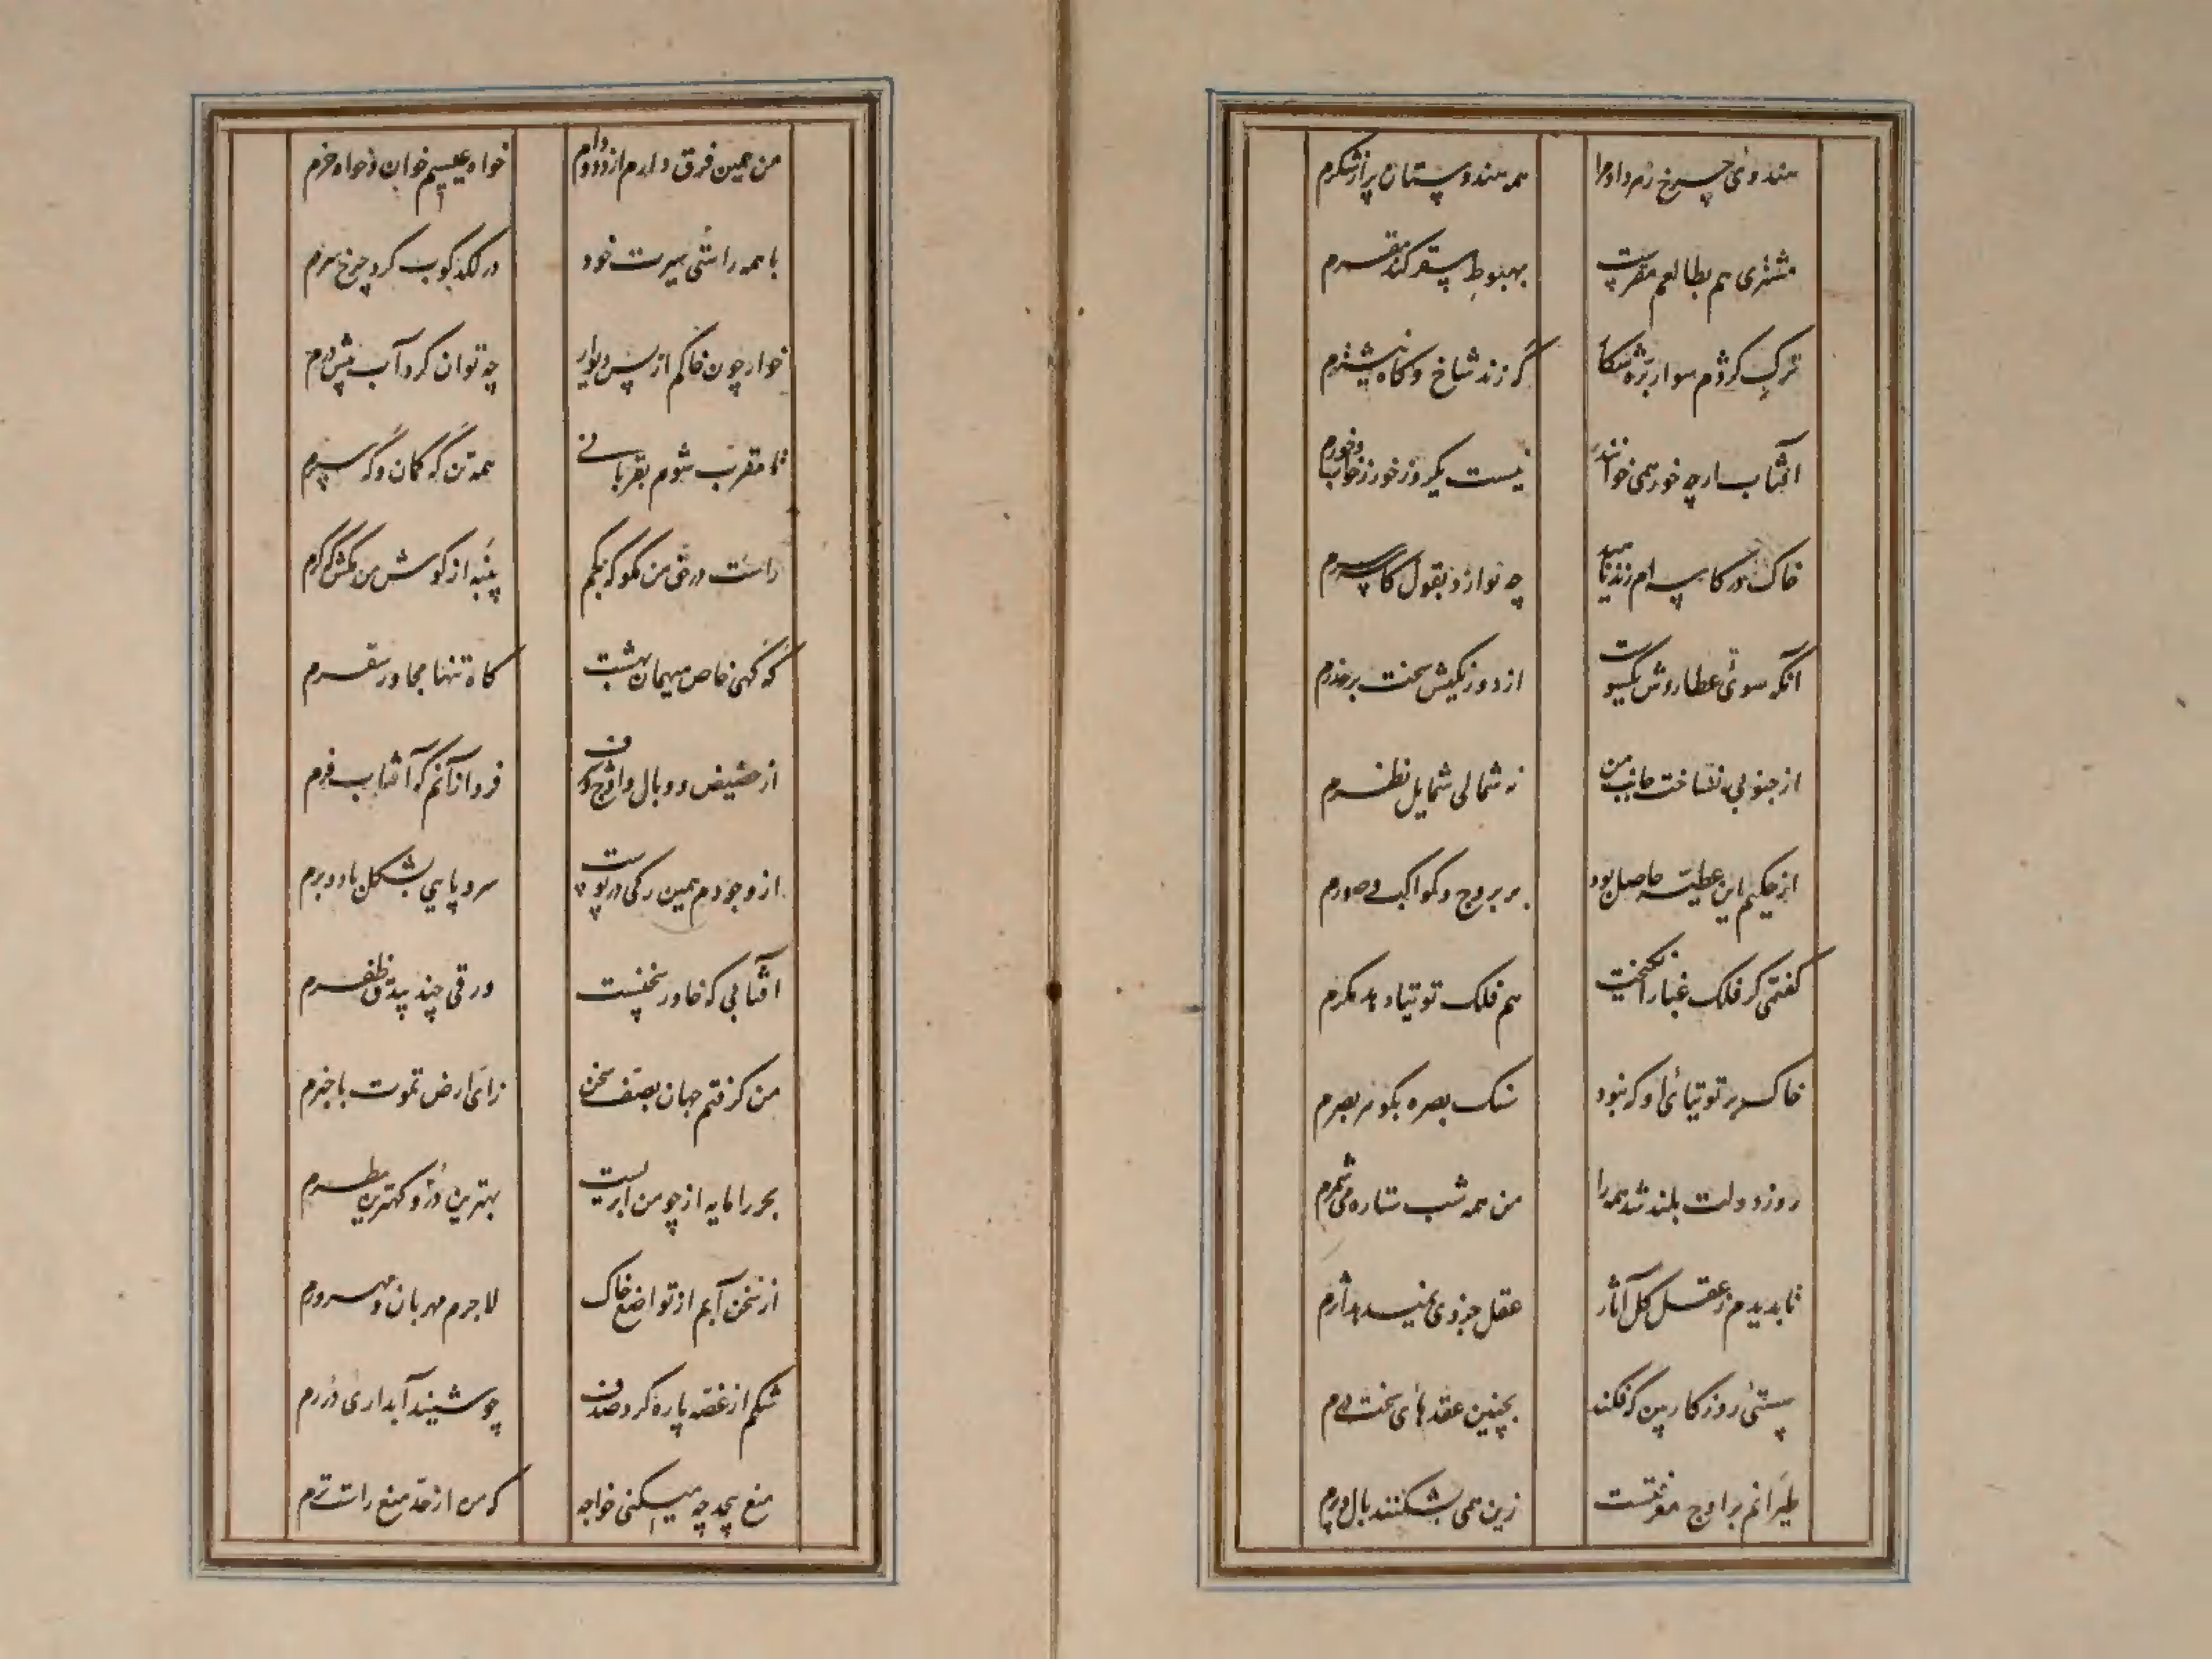 هندوی چرخ زهر داد مرا همه هندوستان پر از شکرم
مشتری هم بطالعم مقریست بهبوط سقر کند مقرم
ترک گردم سوار گر زند شاخ و گاه
آفتاب ارچه خور همی خوانند نیست یکروز خور ز خواب و خورم
خاک در کاسه ام زند ناهید چه نوازد بقول کاسه گرم
آنکه سوی عطاردش یکسوست از دو رنگیش سخت بر حذرم
از جنوبی نتاخت جانب من نه شمالی شمایل نظرم
از حکیم این عطیّه حاصل بود بر بروج و کواکب صورم
گفتی گر فلک غبار انگیخت هم فلک توتیا دهد مگرم
خاک بر توتیای او گر نبود سنک بصره بگو بر بصرم
روز دولت بلند شد همه را من همه شب ستاره می شمرم
نابدیدم ز عقل کل آثار عقل جزوی نمیدهد اثرم
پستی روزگار بین که فکند بچنین عقدهای سخت درم
طیرانم بر اوج معرفتست زین همی بشکنند بال و پرم
من همین فرق دارم از دد و دام خواه عیسیم خوان و خواه خرم
با همه راستی سیرت خود در لکدکوب کرد چرخ سرم
خوار چون خاکم از پس دیوار چه توان کرد آب پیش درم
تا مقرب شوم بقربانی همه تن گه کمان و گه سپرم
راست در حق من مگو که پنبه از گوش من مکش که کرم
گه گهی خاص میهمان بهشت گاه تنها مجاور سقرم
از حضیض و وبال و اوج و شرف فرد از آنم که آفتاب فرم
از وجودم همین رکی در پوست سر و پایی بشکل
آفتابی که خاور سخنست ورقی چند ظفرم
من گرفتم جهان بصنف سخن زای ارض تموت با خبرم
بحر را مایه از چو من ابریست بهترین درّ و کهترین مطرم
از سخن آبم از تواضع خاک لاجرم مهربان و مهر ورم
شکم از غصه پاره کرد صدف چو شنید آبداری دررم
منع بیحد چه میکنی خواجه که من از حد منع راست ترم